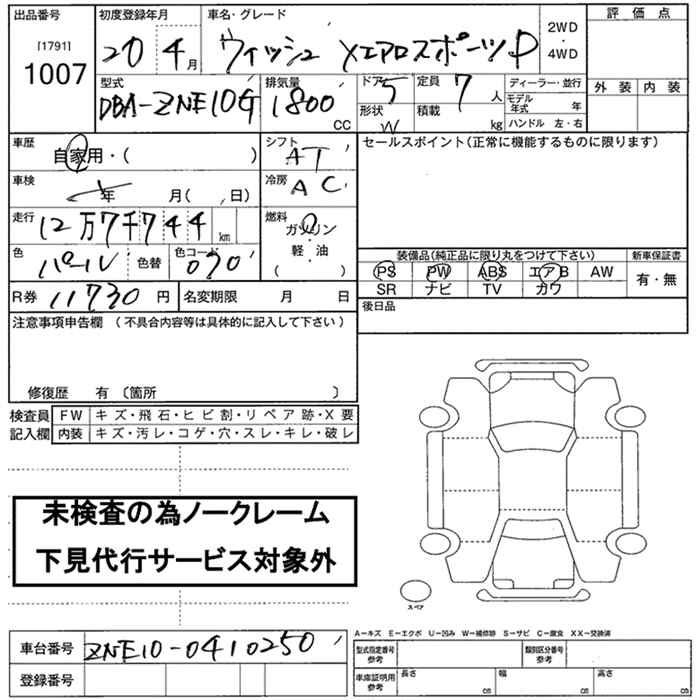 出品番号 初度登録年月 車名・グレード 評価点
[1791] 1007 20 4月 ウィッシュ XエアロスポーツP 2WD・4WD
外装 内装
型式 排気量 ドア 定員 ディーラー・並行
DBA-ZNE10G 1800 CC 5 7人 モデル年式 年
形状 W 積載 kg ハンドル 左・右
車歴 自家用・( ) シフト AT セールスポイント(正常に機能するものに限ります)
車検 年 月( 日) 冷房 AC
走行 12万7千744km 燃料 ガソリン・軽・油 ( )
色 パール 色替 色コード 070 装備品(純正品に限り丸をつけて下さい) 新車保証書
PS PW ABS エアB AW 有・無
R券 11730円 名変期限 月 日 SR ナビ TV カワ
注意事項申告欄 (不具合内容等は具体的に記入して下さい) 後日品
修復歴 有 〔箇所 〕
検査員 FW キズ・飛石・ヒビ割・リペア跡・X要
記入欄 内装 キズ・汚レ・コゲ・穴・スレ・キレ・破レ
未検査の為ノークレーム
下見代行サービス対象外
スペア
A－キズ E－エクボ U－凹み W－補修跡 S－サビ C－腐食 XX－交換済
車台番号 ZNE10-0410250 型式指定番号 参考 類別区分番号 参考
登録番号 車庫証明用 参考 長さ cm 幅 cm 高さ cm